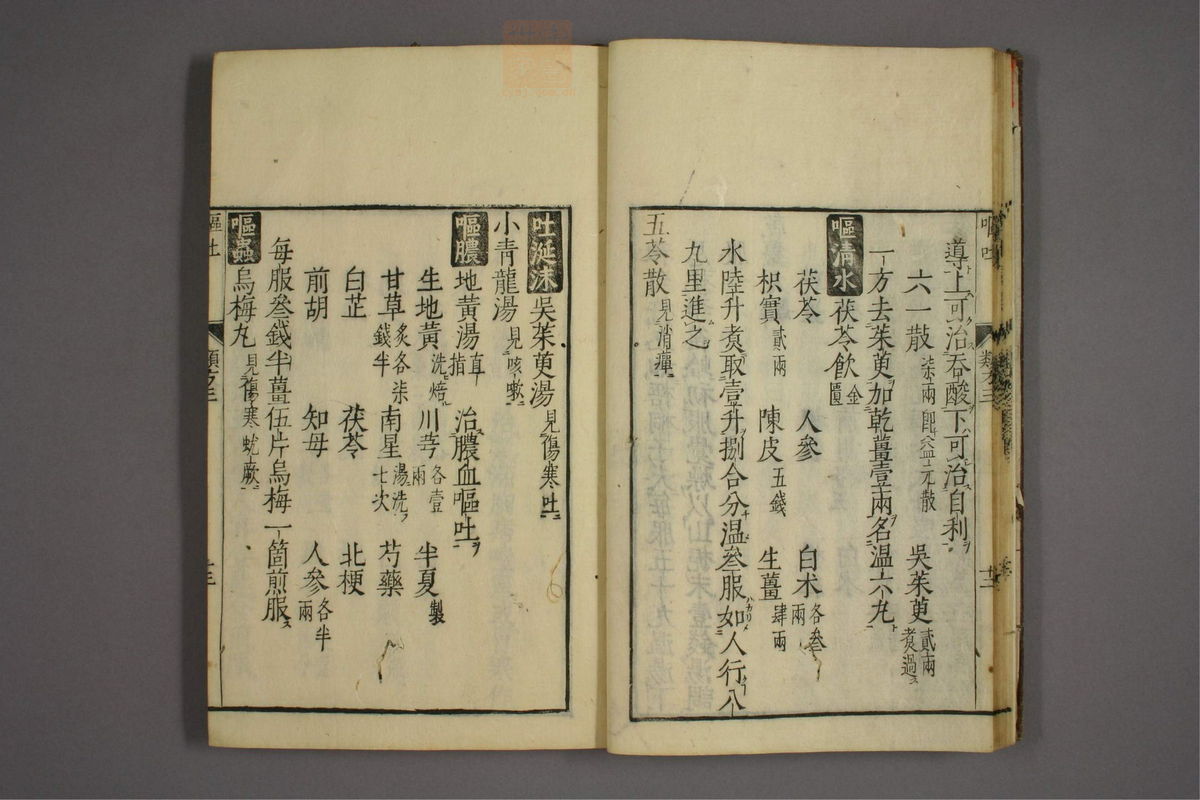 導上可治吞酸下可治自利
六一散 柒兩 即益元散 吳茱萸 貳兩 煑過ス
一方去茱萸ヲ加乾薑壹兩ヲ名溫六丸ト
嘔清水 茯苓飲 金匱
茯苓 人參 白朮 各叄兩
枳實 貳兩 陳皮 五錢 生薑 肆兩
水陸升煑取壹升捌合分溫叄服如人行八
九里進之
五苓散 見消癉
吐涎沫 吳茱萸湯 見傷寒吐
小青龍湯 見咳嗽
嘔膿 地黃湯 直指 治膿血嘔吐ヲ
生地黃 洗焙 川芎 各壹兩 半夏 製
甘草 炙各柒錢半 南星 湯洗七次 芍藥
白芷 茯苓 北梗
前胡 知母 人參 各半兩
每服叄錢半薑伍片烏梅一箇煎服ス
嘔蟲 烏梅丸 見傷寒蚘厥
嘔吐
類方三